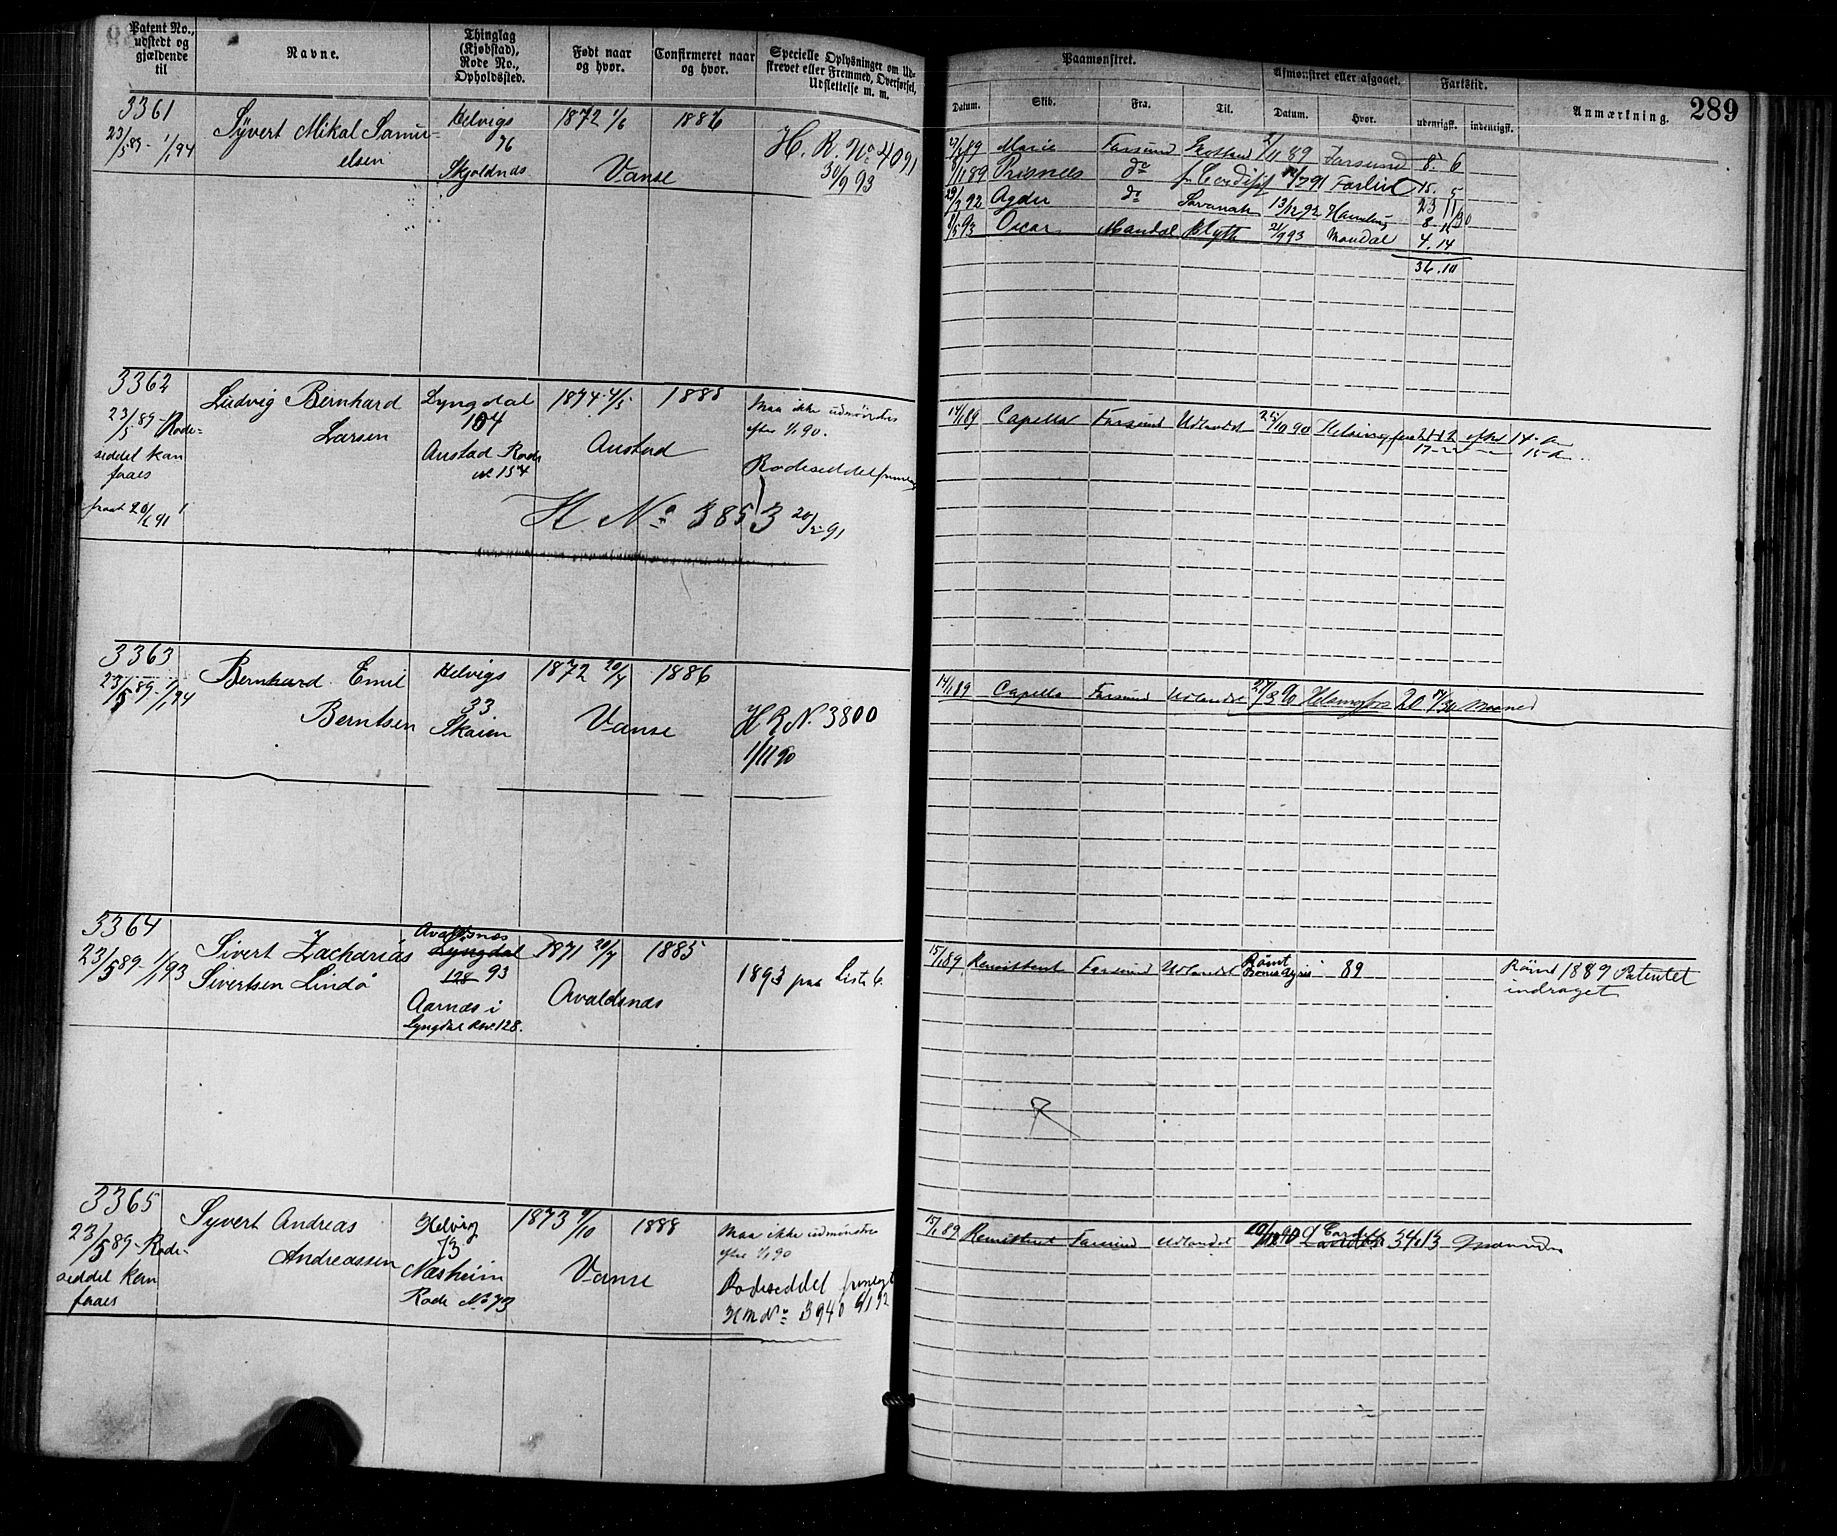 Patent No., udstedt og gjældende til
Navne.
Thinglag (Kjøbstad), Rode No., Opholdssted.
Født naar og hvor.
Confirmeret naar og hvor.
Specielle Oplysninger om Udskrevet eller Fremmed, Overførsel, Udslettelse m. m.
Paamønstret.
Afmønstret eller afgaaet.
Fartstid.
Anmærkning.
289
Datum.
Skib.
Fra.
Til.
Datum.
Hvor.
udenrigsk.
indenrigsk.
3361
23/5 89 - 1/1 94
Syvert Mikal Samu-
elsen
Helvigs
76
Skjoldnæs
1872 1/6
Vanse
1886
H. R. No 4091
30/9 93
Marie Farsund 89 Farsund 8. 6
11 89 do 91 15. 5
92 Agder do Savanah 13/12 92 23 11
5 93 Oscar Mandal Blyth 21/9 93 Mandal 4. 14
36. 10
3362
23/5 89 - Rode-
seddel kan
faaes
20/1 91
Ludvig Bernhard
Larsen
Lyngdal
104
Austad Rode
No 154
1874 4/5
Austad
1888
Maa ikke udmønstres
efter 1/1 90.
Rodeseddel
H No 3853 20/2 91
14/1 89 Capella Farsund Udlandet 25/10 90
3363
23/5 89 - 1/1 94
Bernhard Emil
Berntsen
Helvigs
33
Skaien
1872 20/7
Vanse
1886
H R N. 3800
1/11 90
14/1 89 Capella Farsund Udlandet 90 Helsingfors 20
3364
23/5 89 - 1/1 93
Sivert Zacharias
Sivertsen Lindø
Avaldsnæs
Lyngdal
128 93
Aarnæs i
Lyngdal Rode 128.
1871 20/7
Avaldsnæs
1885
1893 paa Liste 6.
15/1 89 Remittent Farsund Udlandet Rømt 89
Rømt 1889 Patentet
indraget
3365
23/5 89 - Rode-
seddel kan
faaes
Syvert Andreas
Andreassen
Helvig
73
Næsheim
Rode No 73
1873 9/10
Vanse
1888
Maa ikke udmønstres
efter 1/1 90
Rodeseddel
H M No 3940 9/1 92
15/1 89 Remittent Farsund Udlandet 34 13